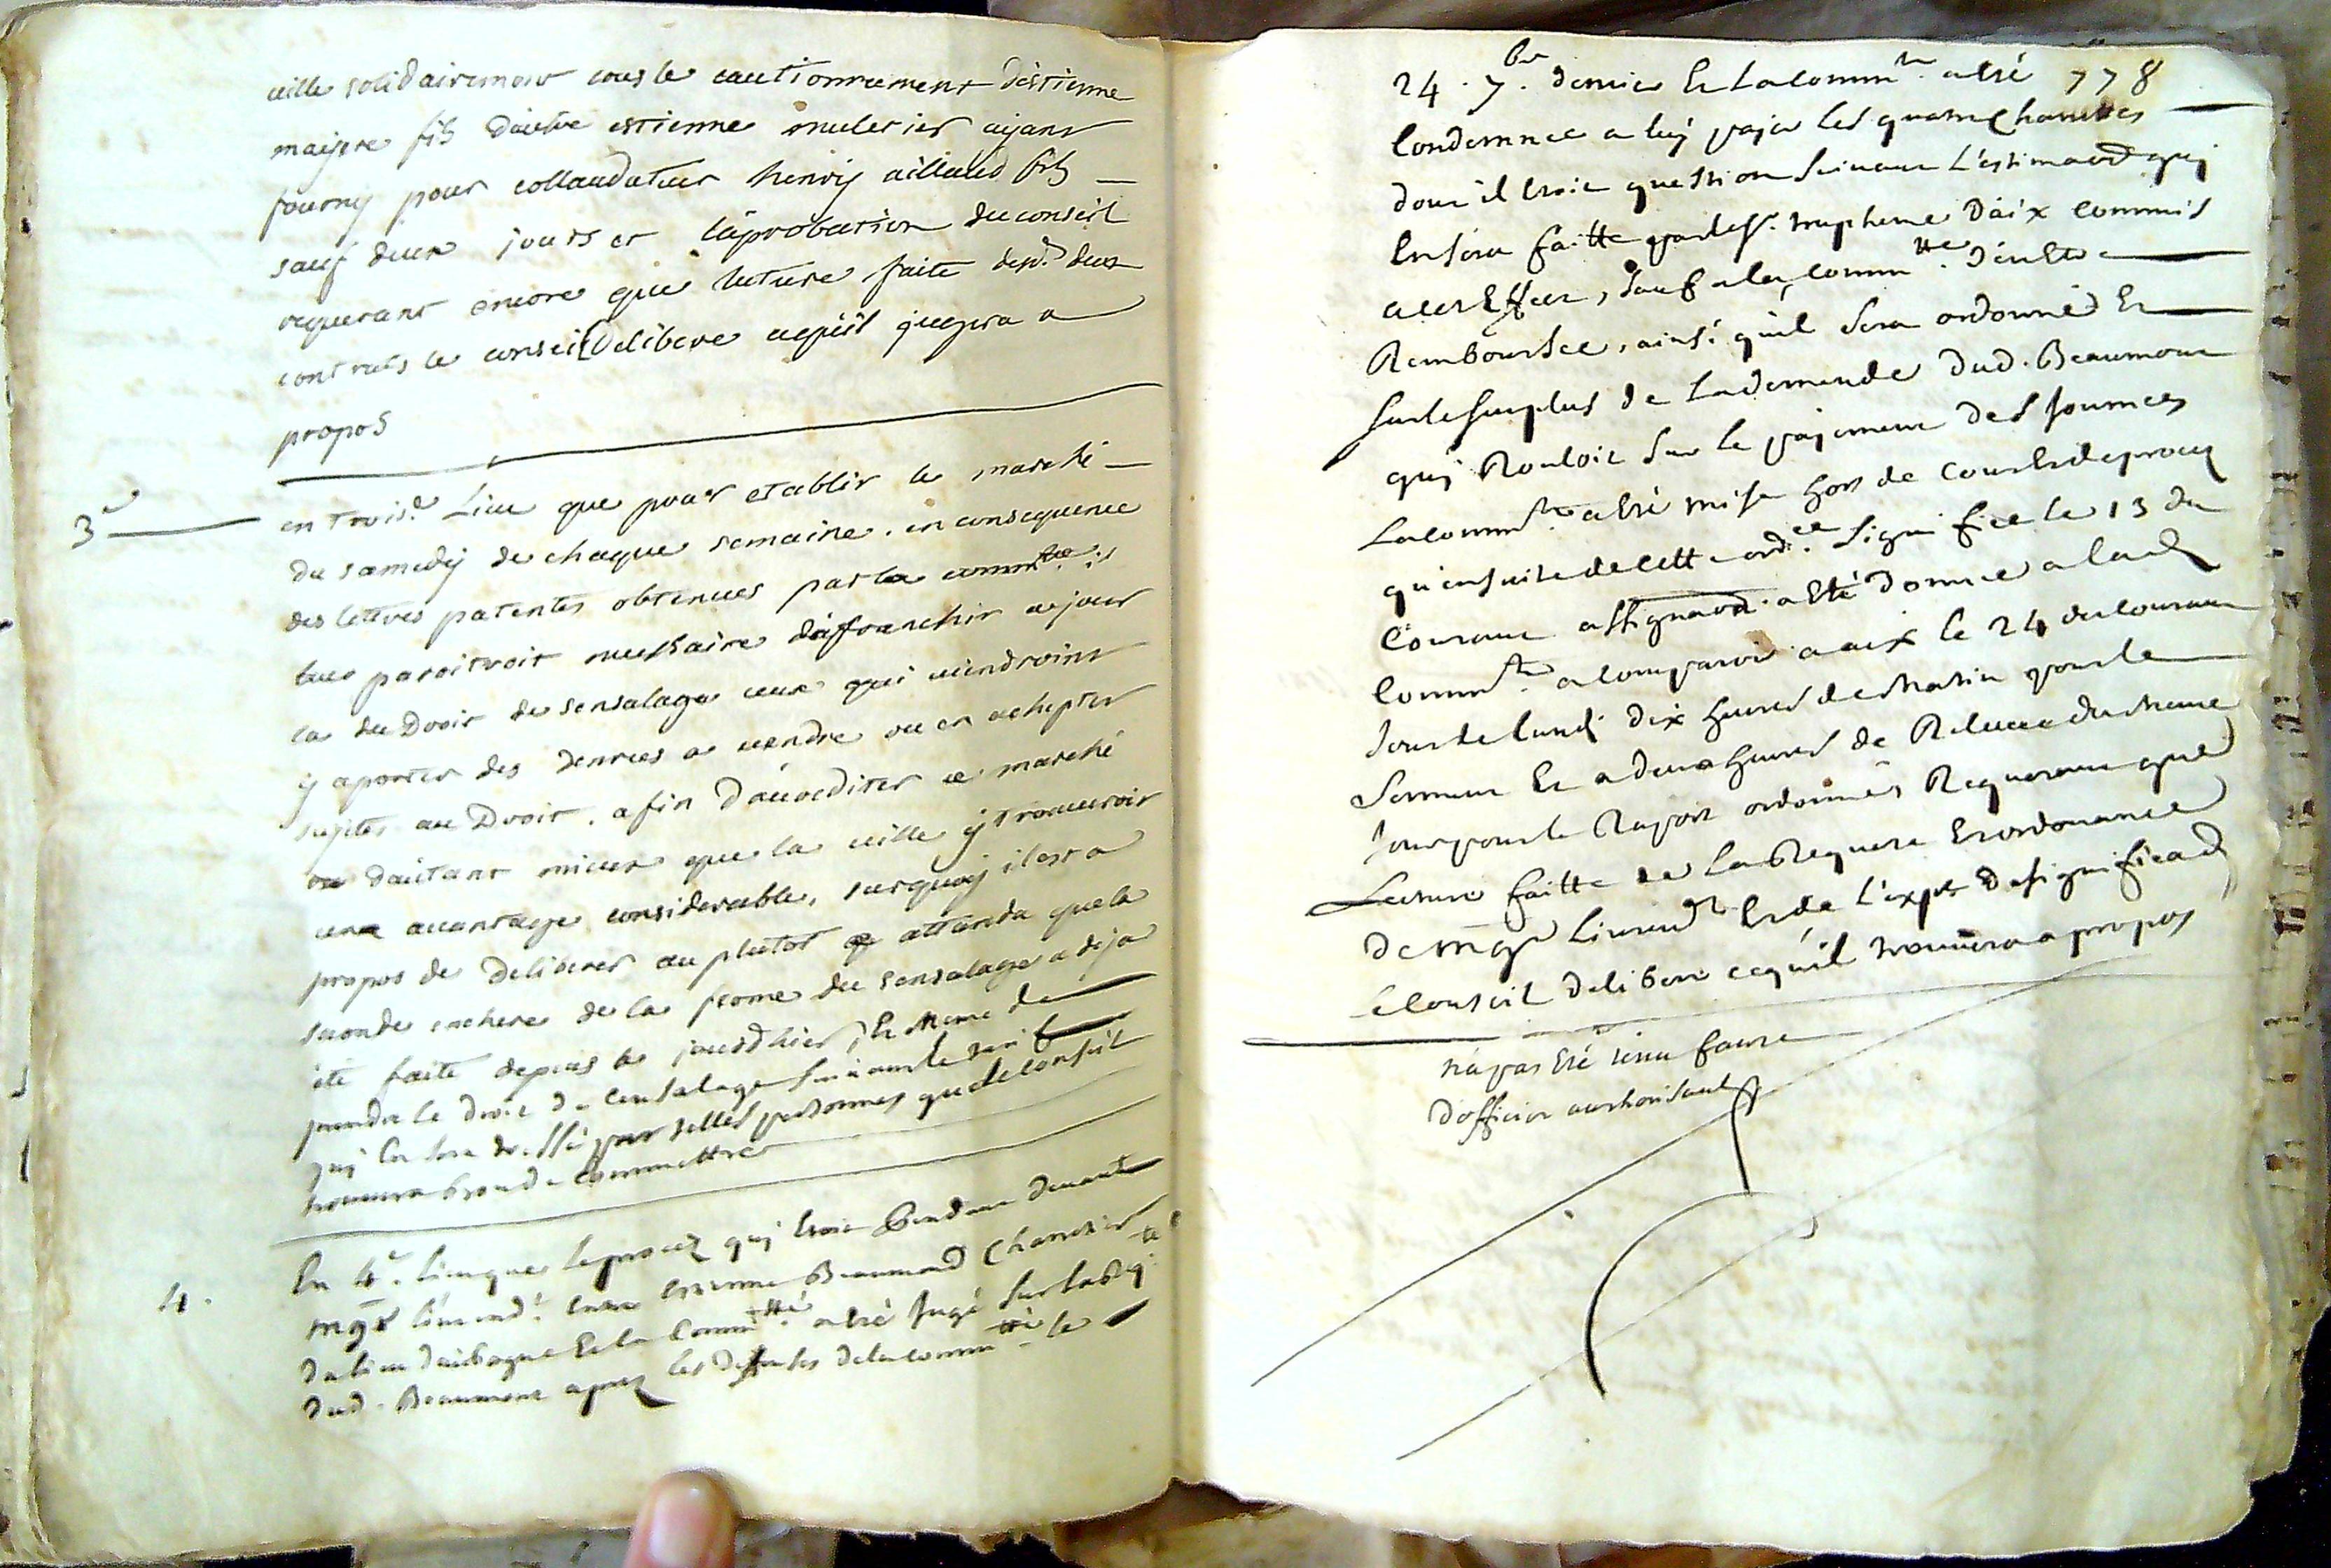 ville solidairement sous le cautionnement d'estienne
mayere fils d'autre estienne mulетier ayant
fourny pour collaudateur henriy aillaud fils
sauf deux jours et l'aprobation du conseil
requerant encore que lecture faite desd. deux
contrats le conseil delibere ce qu'il jugera a
propos
3e en trois.e Lieu que pour etablir le marché
du samedy de chaque semaine. en consequence
des lettres patentes obtenues par la commté. il
leur paroitroit necessaire d'afranchir ce jour
la du Droit de sensalage ceux qui viendroint
y aporter des denrees a vendre ou en achepter
sujetes au Droit. afin d'acrediter ce marché
d'autant mieux que la ville y trouveroit
une avantage considerable, surquoy il est a
propos de deliberer au plutot attandu que la
seconde enchere de la ferme du sensalage a deja
été faite depuis le jourdhier, & meme de
prendre le droit de censalage suivant le
quj en sera dressé par telles personnes que le conseil
trouvera bon de commettre
4. En 4e. lieu que le procez quj étoit pendant devant
mgr l'intend.t entre estienne Beaumond Charretier
du lieu d'aubagne & la Commté. a été jugé sur la Req.te
dud. Beaumont aprez les defenses de la commté le
24. 7bre. dernier & la commté. a été 778
Condemnee a luy payer les quatre Charrettes
dont il étoit question suivant l'estimaōn quj
en sera faitte par le sr. trupheme d'aix commis
a cet effect, sauf a la commtté. d'en être
Remboursee, ainsi qu'il sera ordonné &
sur le surplus de la demande dud. Beaumont
quj Rouloit sur le payement des Journees
La commté. a été mise hors de cour & de procez
qu'ensuite de cette ord.ce signifiee le 13 du
Courant assignaōn. a été donnee a lad.
Commté. a comparoir a aix le 24 du courant
Jour de lundi dix heures de matin pour le
serment & a deux heures de Relevee du meme
Jour pour le Raport ordonné, Requerant que
Lecture faitte de la Requete & ordonnance
de mgr L'intend.t & de l'exploit de significaōn
le Conseil delibere ce qu'il trouvera a propos
n'a pas été tenu faute
d'officier authorisant